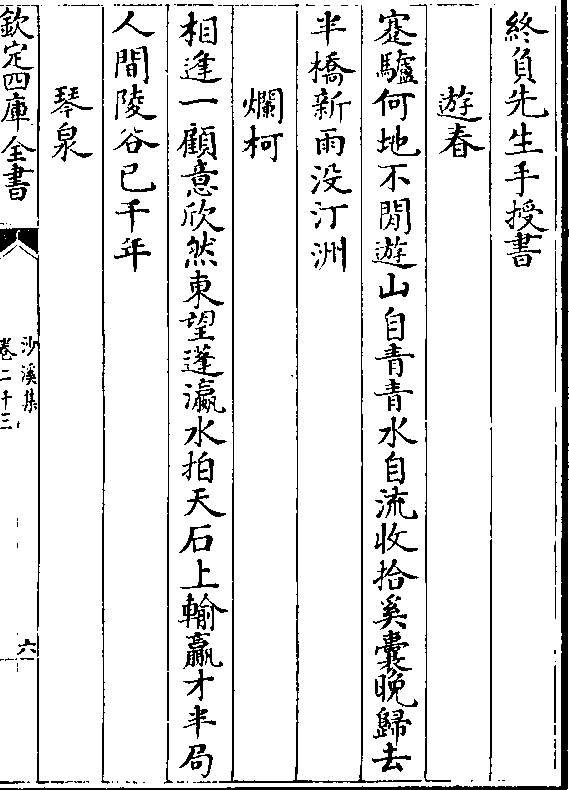 終負先生手授書
遊春
蹇驢何地不閒遊山自青青水自流收拾奚囊晚歸去
半橋新雨没汀洲
爛柯
相逢一顧意欣然東望蓬瀛水拍天石上輸贏才半局
人間陵谷已千年
琴泉
欽定四庫全書
沙溪集
卷二十三
六